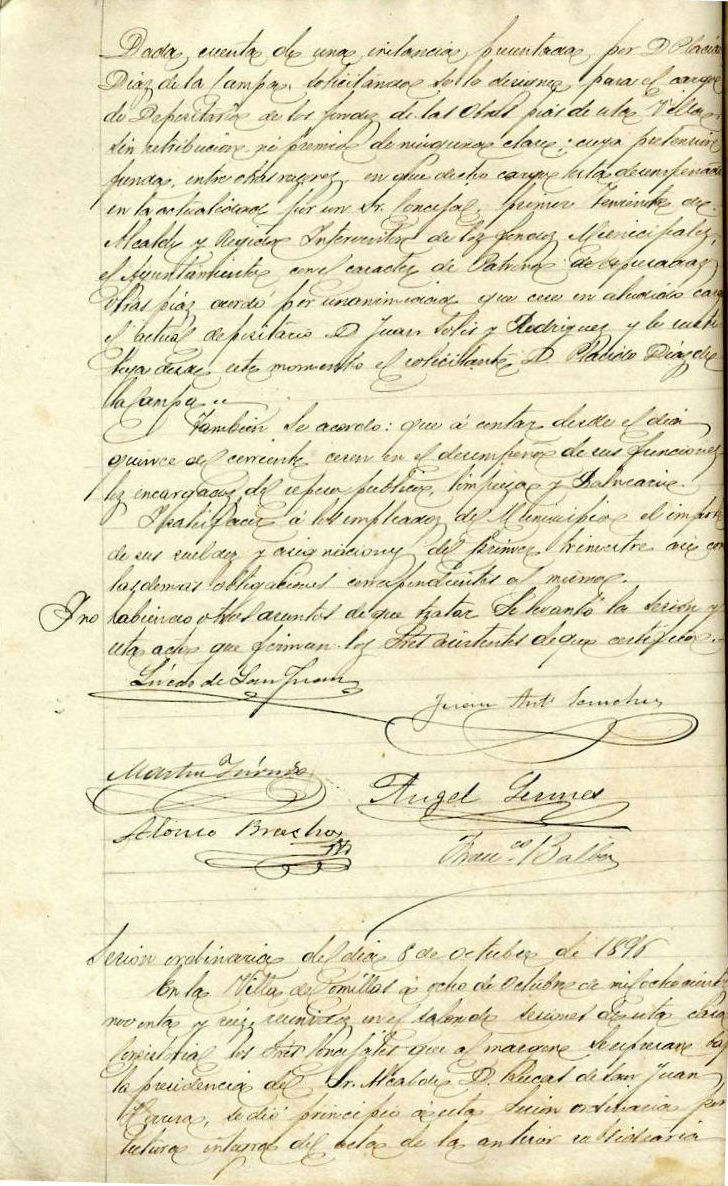 Dada cuenta de una instancia presentada por D Placido
Diaz de la Campa, solicitando se le designe para el cargo
de Depositario de los fondos de las Obras pias de esta Villa
sin retribucion ni premio de ninguna clase; cuya pretension
funda, entre otras razones, en que dicho cargo esta desempeñado
en la actualidad por un Sr. Concejal, primer Teniente de
Alcalde y Regidor Interventor de los fondos Municipales,
el Ayuntamiento con el caracter de Patrono de expresadas
obras pias acordó por unanimidad que cese en aludido cargo
el actual depositario D Juan Solis y Rodriguez y le susti
tuya desde este momento el solicitante D. Placido Diaz de
la Campa.
Tambien se acordo: que á contar desde el dia
quince del corriente cesen en el desempeño de sus funciones
los encargados del reparo publico, limpieza y Balneario.
Y satisfacer á los empleados del Municipio el importe
de sus sueldos y asignaciones del primer trimestre asi como
las demas obligaciones correspondientes al mismo.
Y no habiendo otros asuntos de que tratar se levantó la sesion y
esta acta que firman los Sres asistentes de que certifico.
Lucas de San Juan
Juan Ant. Sanchez
Martin
Angel
Alonso Bracho
Fran.co Balbas
Sesion ordinaria del dia 8 de octubre de 1896
En la Villa de Comillas á ocho de Octubre de mil ochocientos
noventa y seis, reunidos en el salon de sesiones de esta Casa
Consistorial los Sres Concejales que al margen se expresan bajo
la presidencia del Sr. Alcalde D. Lucas de San Juan
se dió principio á esta sesion ordinaria por
lectura integra del acta de la anterior subsidiaria